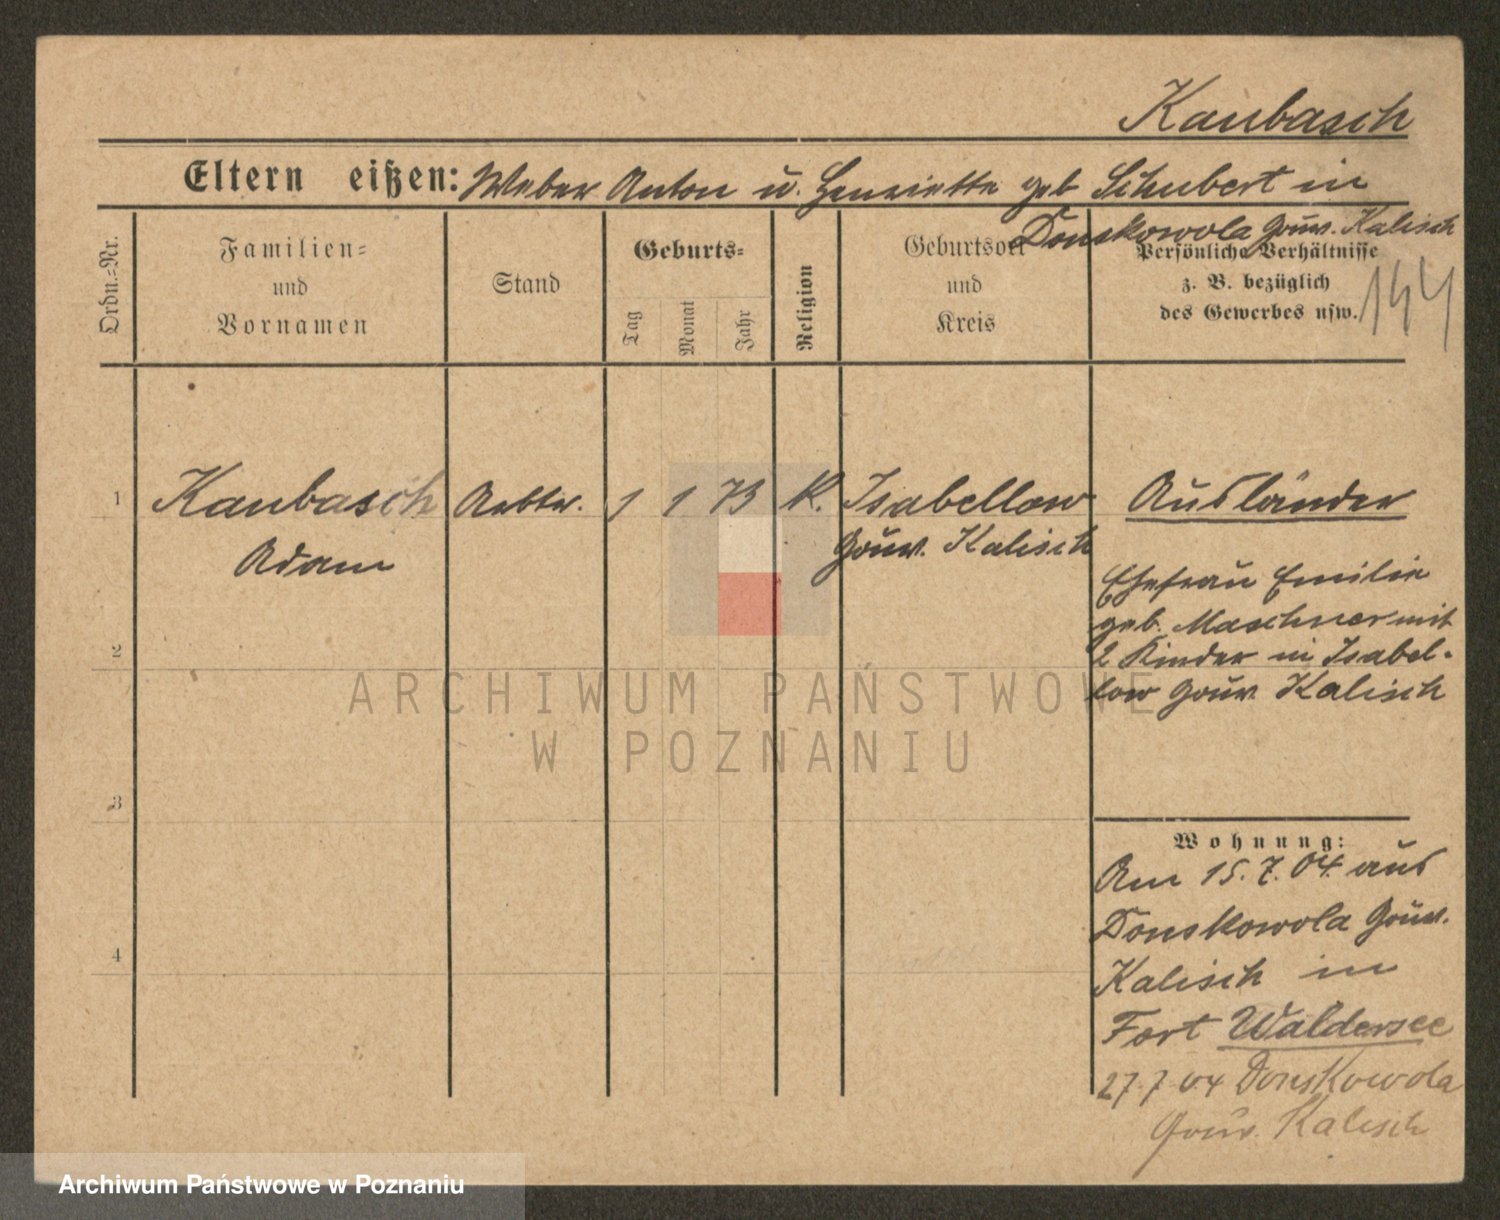 Kaubasch
Eltern eißen: Weber Anton u. Henriette geb Schubert in
Donskowola Gouv. Kalisch
Ordn.-Nr.
Familien-
und
Vornamen
Stand
Geburts-
Tag
Monat
Jahr
Religion
Geburtsort
und
Kreis
Persönliche Verhältnisse
z. B. bezüglich
des Gewerbes usw.
144
1
Kaubasch
Adam
Arbtr.
1 1 73
K.
Isabellow
Gouv. Kalisch
Ausländer
Ehefrau Emilie
geb. Maschner mit
2 Kinder in Isabel-
low Gouv. Kalisch
2
3
4
Wohnung:
Am 15.7.04. aus
Donskowola Gouv.
Kalisch in
Fort Waldersee
27 7 04 Donskowola
Gouv. Kalisch
ARCHIWUM PAŃSTWOWE
W POZNANIU
Archiwum Państwowe w Poznaniu